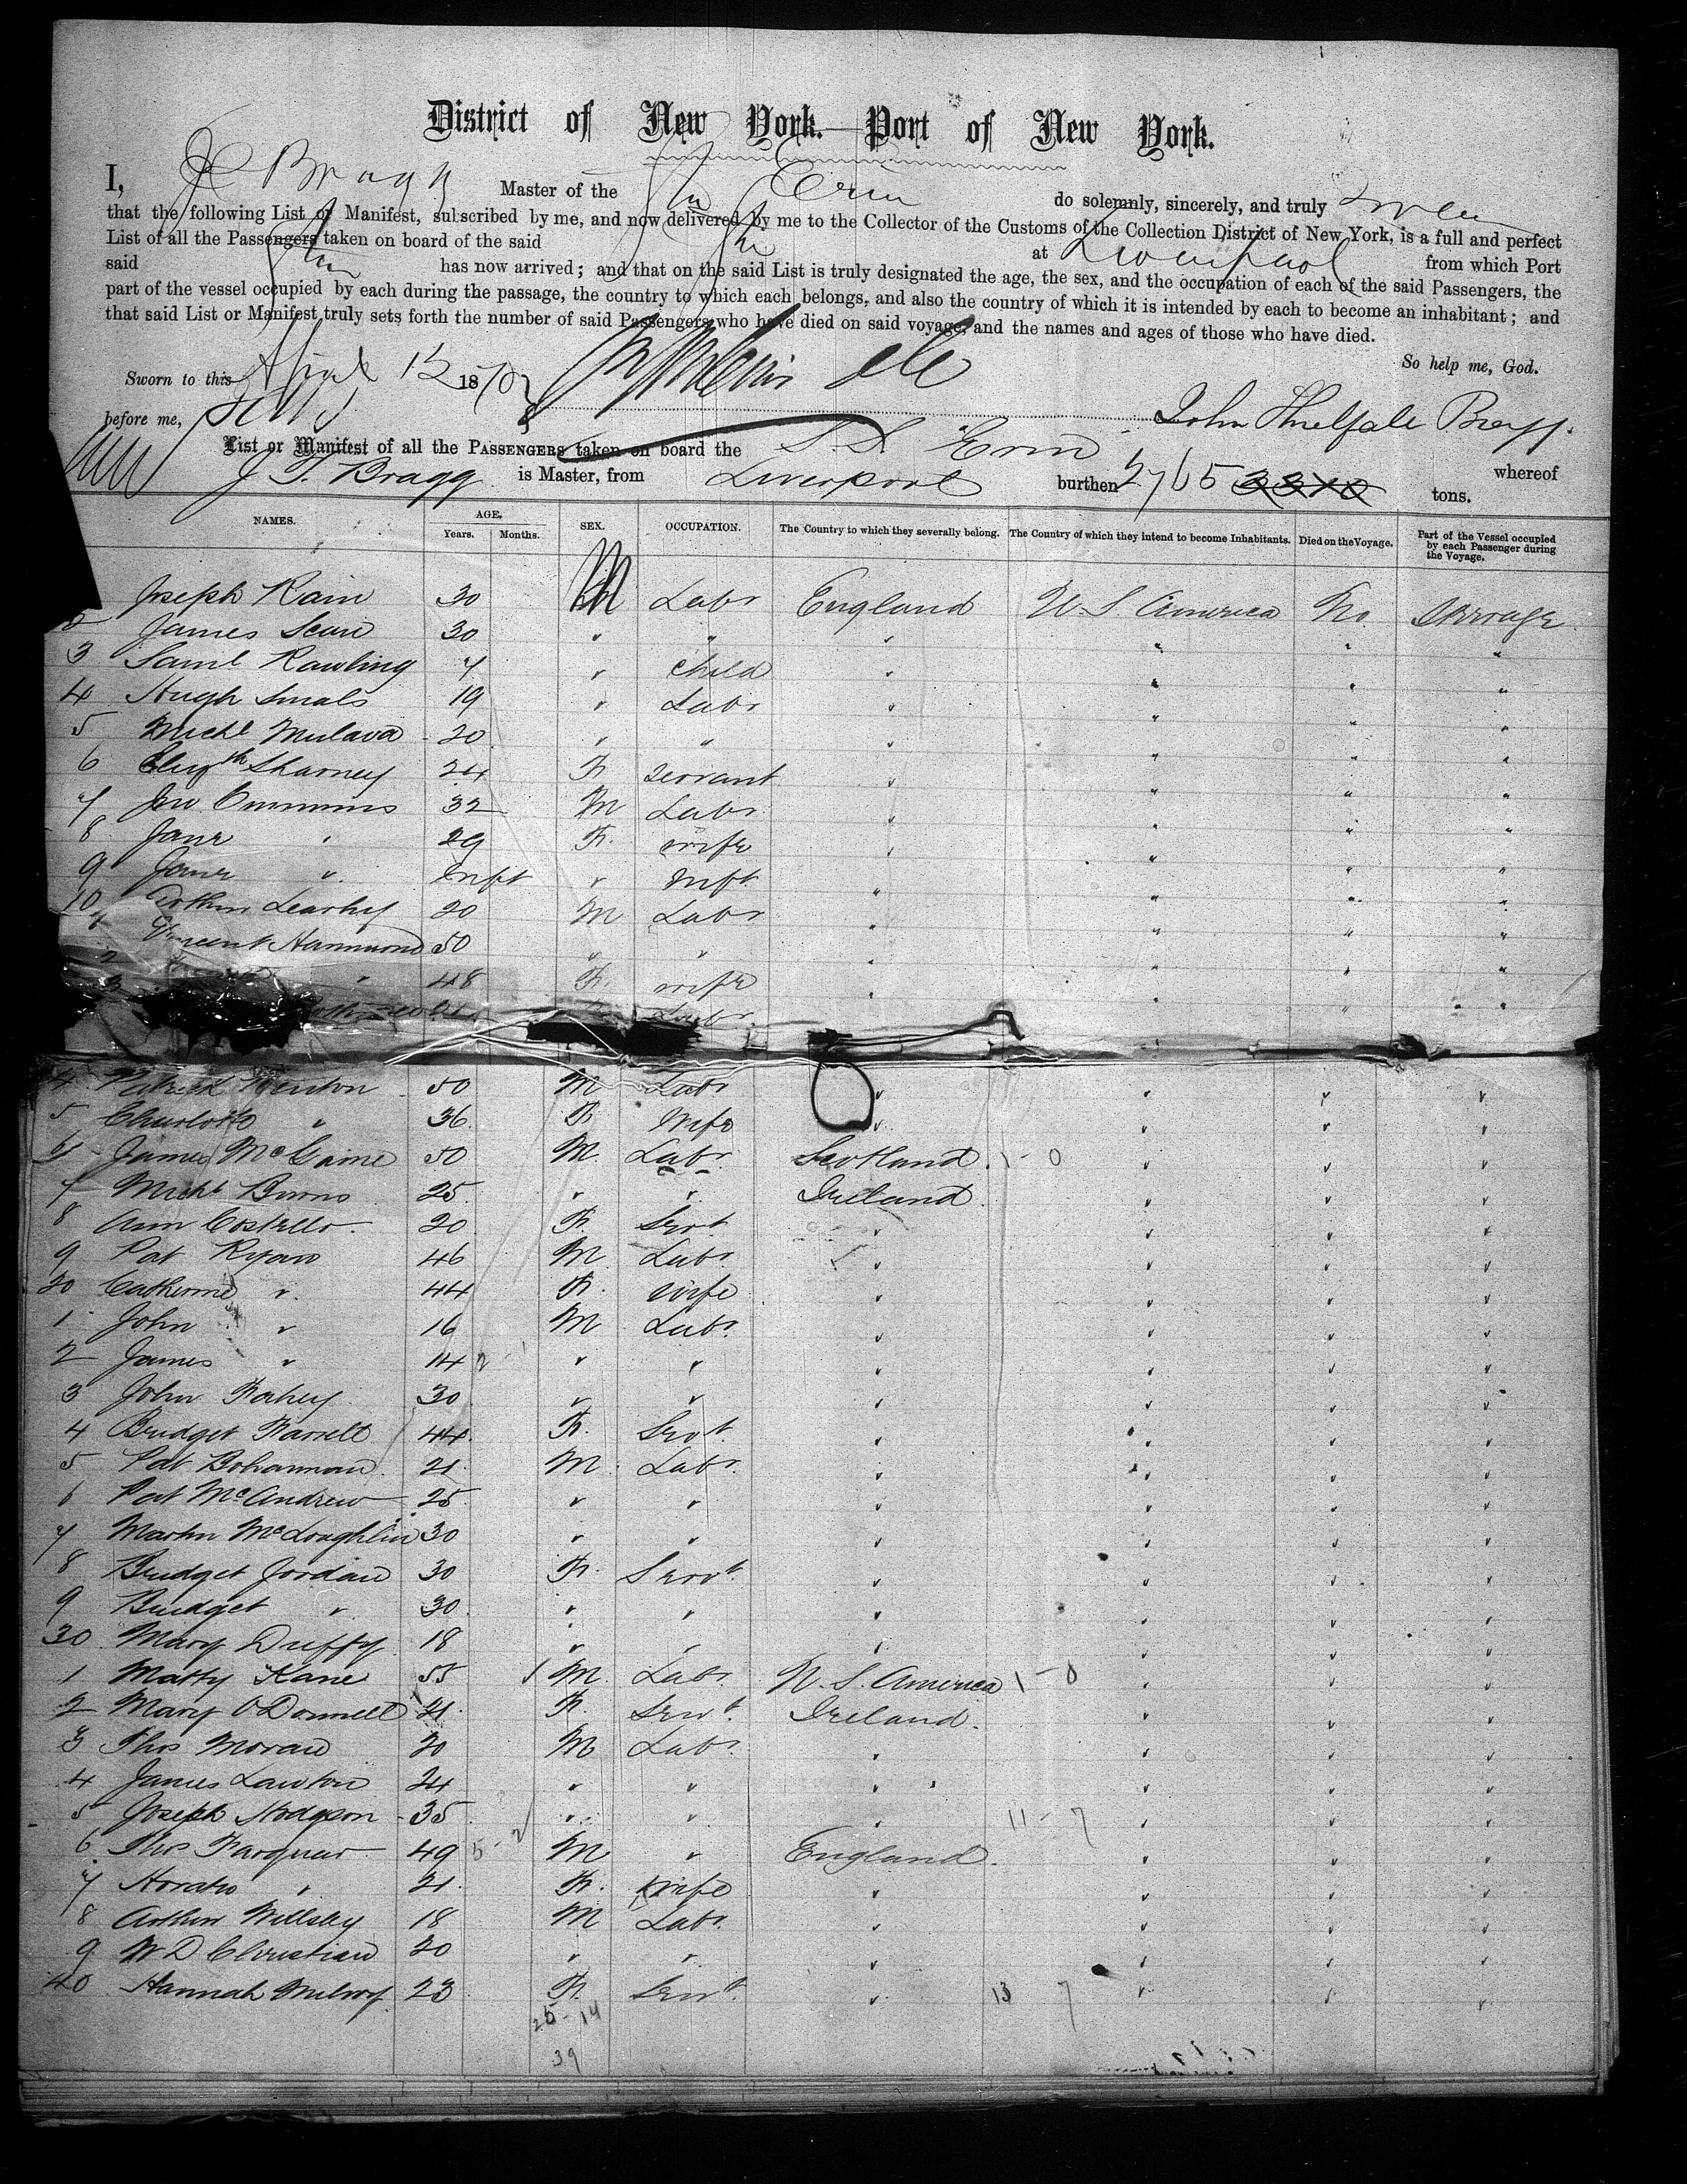 District of New York.—Port of New York.
I, J Bragg Master of the Str Erin do solemnly, sincerely, and truly swear
that the following List or Manifest, subscribed by me, and now delivered by me to the Collector of the Customs of the Collection District of New York, is a full and perfect
List of all the Passengers taken on board of the said Str at Liverpool from which Port
said Str has now arrived; and that on the said List is truly designated the age, the sex, and the occupation of each of the said Passengers, the
part of the vessel occupied by each during the passage, the country to which each belongs, and also the country of which it is intended by each to become an inhabitant; and
that said List or Manifest truly sets forth the number of said Passengers who have died on said voyage, and the names and ages of those who have died.
So help me, God.
Sworn to this April 12 1870
before me, John Thelfale Bragg.
List or Manifest of all the PASSENGERS taken on board the S.S Erin whereof
J. T. Bragg is Master, from Liverpool burthen 2765 3310 tons.
NAMES. AGE. Years. Months. SEX. OCCUPATION. The Country to which they severally belong. The Country of which they intend to become Inhabitants. Died on the Voyage. Part of the Vessel occupied by each Passenger during the Voyage.
Joseph Kain 30 M Labr England U. S. America No Steerage
2 James Scan 30 " " " " " "
3 Saml Rawling 7 " Child " " " "
4 Hugh Smals 19 " Labr " " " "
5 Michl Mulava 20 " " " " " "
6 Elizth Sharney 24 F Servant " " " "
7 Jno Cummins 32 M Labr " " " "
8 Jane " 29 F. wife " " " "
9 Jane " Inft " Inft. " " " "
10 Arthur Leachy 20 M Labr " " " "
1 Vincent Hammond 50 " " " " " "
2 " 48 F. wife " " " "
3 Labr " " "
4 Patrick Henton 50 M Labr " " " "
5 Charlotte " 36 F. Wife " " " "
6 James McGaine 50 M. Labr. Scotland. 1-0 " " "
7 Michl Burns 25 " " Ireland " " "
8 Ann Costello 20 F. Servt. " " " "
9 Pat Ryan 46 M Labr. " " " "
20 Catherine " 44 F. wife " " " "
1 John " 16 M Labr. " " " "
2 James " 14 " " " " " "
3 John Fahey 30 " " " " " "
4 Bridget Farrell 44 F. Servt. " " " "
5 Pat Bohannan 21 M. Labr. " " " "
6 Pat McAndrew 25 " " " " " "
7 Martin McLoughlin 30 " " " " " "
8 Bridget Jordan 30 F. Servt. " " " "
9 Bridget " 30 " " " " " "
30 Mary Duffy 18 " " " " " "
1 Matty Kane 55 M. Labr. U. S. America 1-0 " " "
2 Mary O'Donnell 21 F. Servt. Ireland. " " "
3 Thos Moran 20 M Labr. " " " "
4 James Lawton 24 " " " " " "
5 Joseph Hodgson 35 " " " 11-7 " " "
6 Thos Farquar 49 M " England. " " "
7 Horato " 21 F. wife " " " "
8 Arthur Willsley 18 M Labr. " " " "
9 W D Christian 20 " " " " " "
40 Hannah Milroy 23 F. Servt " 13 7 " " "
25-14
39